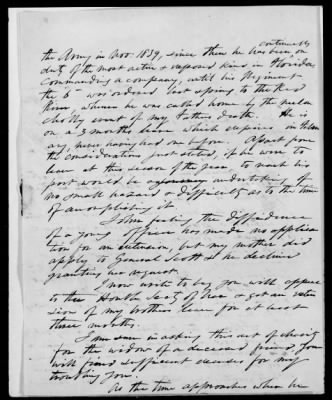 the Army in Nov 1839, since then he has been continually on
duty of the most active & exposed kind in Florida,
Commanding a company, until his Regiment
the 6th was ordered last spring to the Red
River, whence he was called home by the melan
cholly event of my fathers death. He is
on a 3 months leave which expires in
ary, never having had one before. Apart from
the considerations just stated, if he were to
leave at this season of the year to reach his
post would be an undertaking of
no small hazard & difficulty as to the time
of accomplishing it
John feeling the diffidence
of a young officer has made no applica
tion for an extension, but my mother did
apply to General Scott & he declined
granting her request.
I now write to beg you will appeal
to the Honble Secty of War & get an exten
sion of my brothers leave for at least
three months.
I am sure in asking this act of charity
for the widow of a deceased friend you
will find sufficient excuse for my
troubling you.
As the time approaches when he